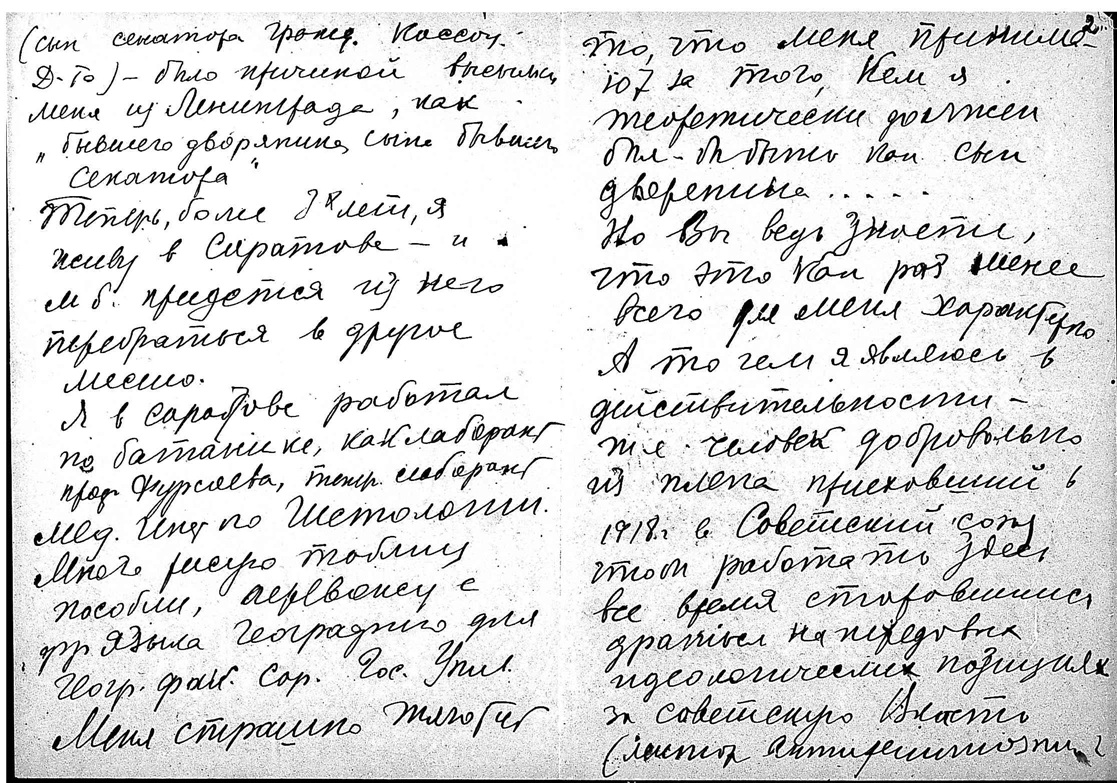 (сын сенатора Гражд. Кассац.
Д-та) – было причиной высылки
меня из Ленинграда, как
"бывшего дворянина, сына бывшего
сенатора"
Теперь, более 3х лет, я
живу в Саратове – и
м.б. придется из него
перебраться в другое
место.
Я в Саратове работал
по батанике, как лаборант
проф. Фурсаева, теперь лаборант
Мед. Инст по Гистологии.
Много рисую таблиц
пособий, перевожу с
фр языка Географию для
Геогр. фак. Сар. Гос. Унив.
Меня страшно тяготит
2
то, что меня принима-
ют за того, кем я
теоретически должен
был-бы быть как сын
дворянина . . . . .
Но Вы ведь знаете,
что это как раз менее
всего для меня характерно
А то чем я являюсь в
действительности –
т.е. человек добровольно
из плена приехавший в
1918г в Советский союз
чтоб работать здесь
все время старавшийся
драться на передовых
идеологических позициях
за советскую Власть
(лектор антирелигиозник